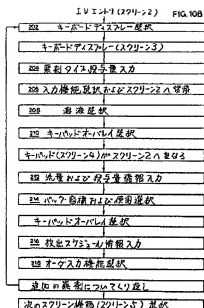 IVエントリ(スクリーン2)
FIG.10B
202 キーボードディスプレー選択
キーボードディスプレー(スクリーン3)
204 薬剤タイプ投与量入力
206 入力機能選択およびスクリーン2へ復帰
208 溶液選択
210 キーパッドオーバレイ選択
キーパッド(スクリーン4)がスクリーン2へ重なる
212 流量および投与量情報入力
214 バッグ
選択
キーパッドオーバレイ選択
216 放出スケジュール情報入力
218 オーダ入力機能選択
追加の薬剤についてくり返し
次のスクリーン機能(スクリーン5)選択